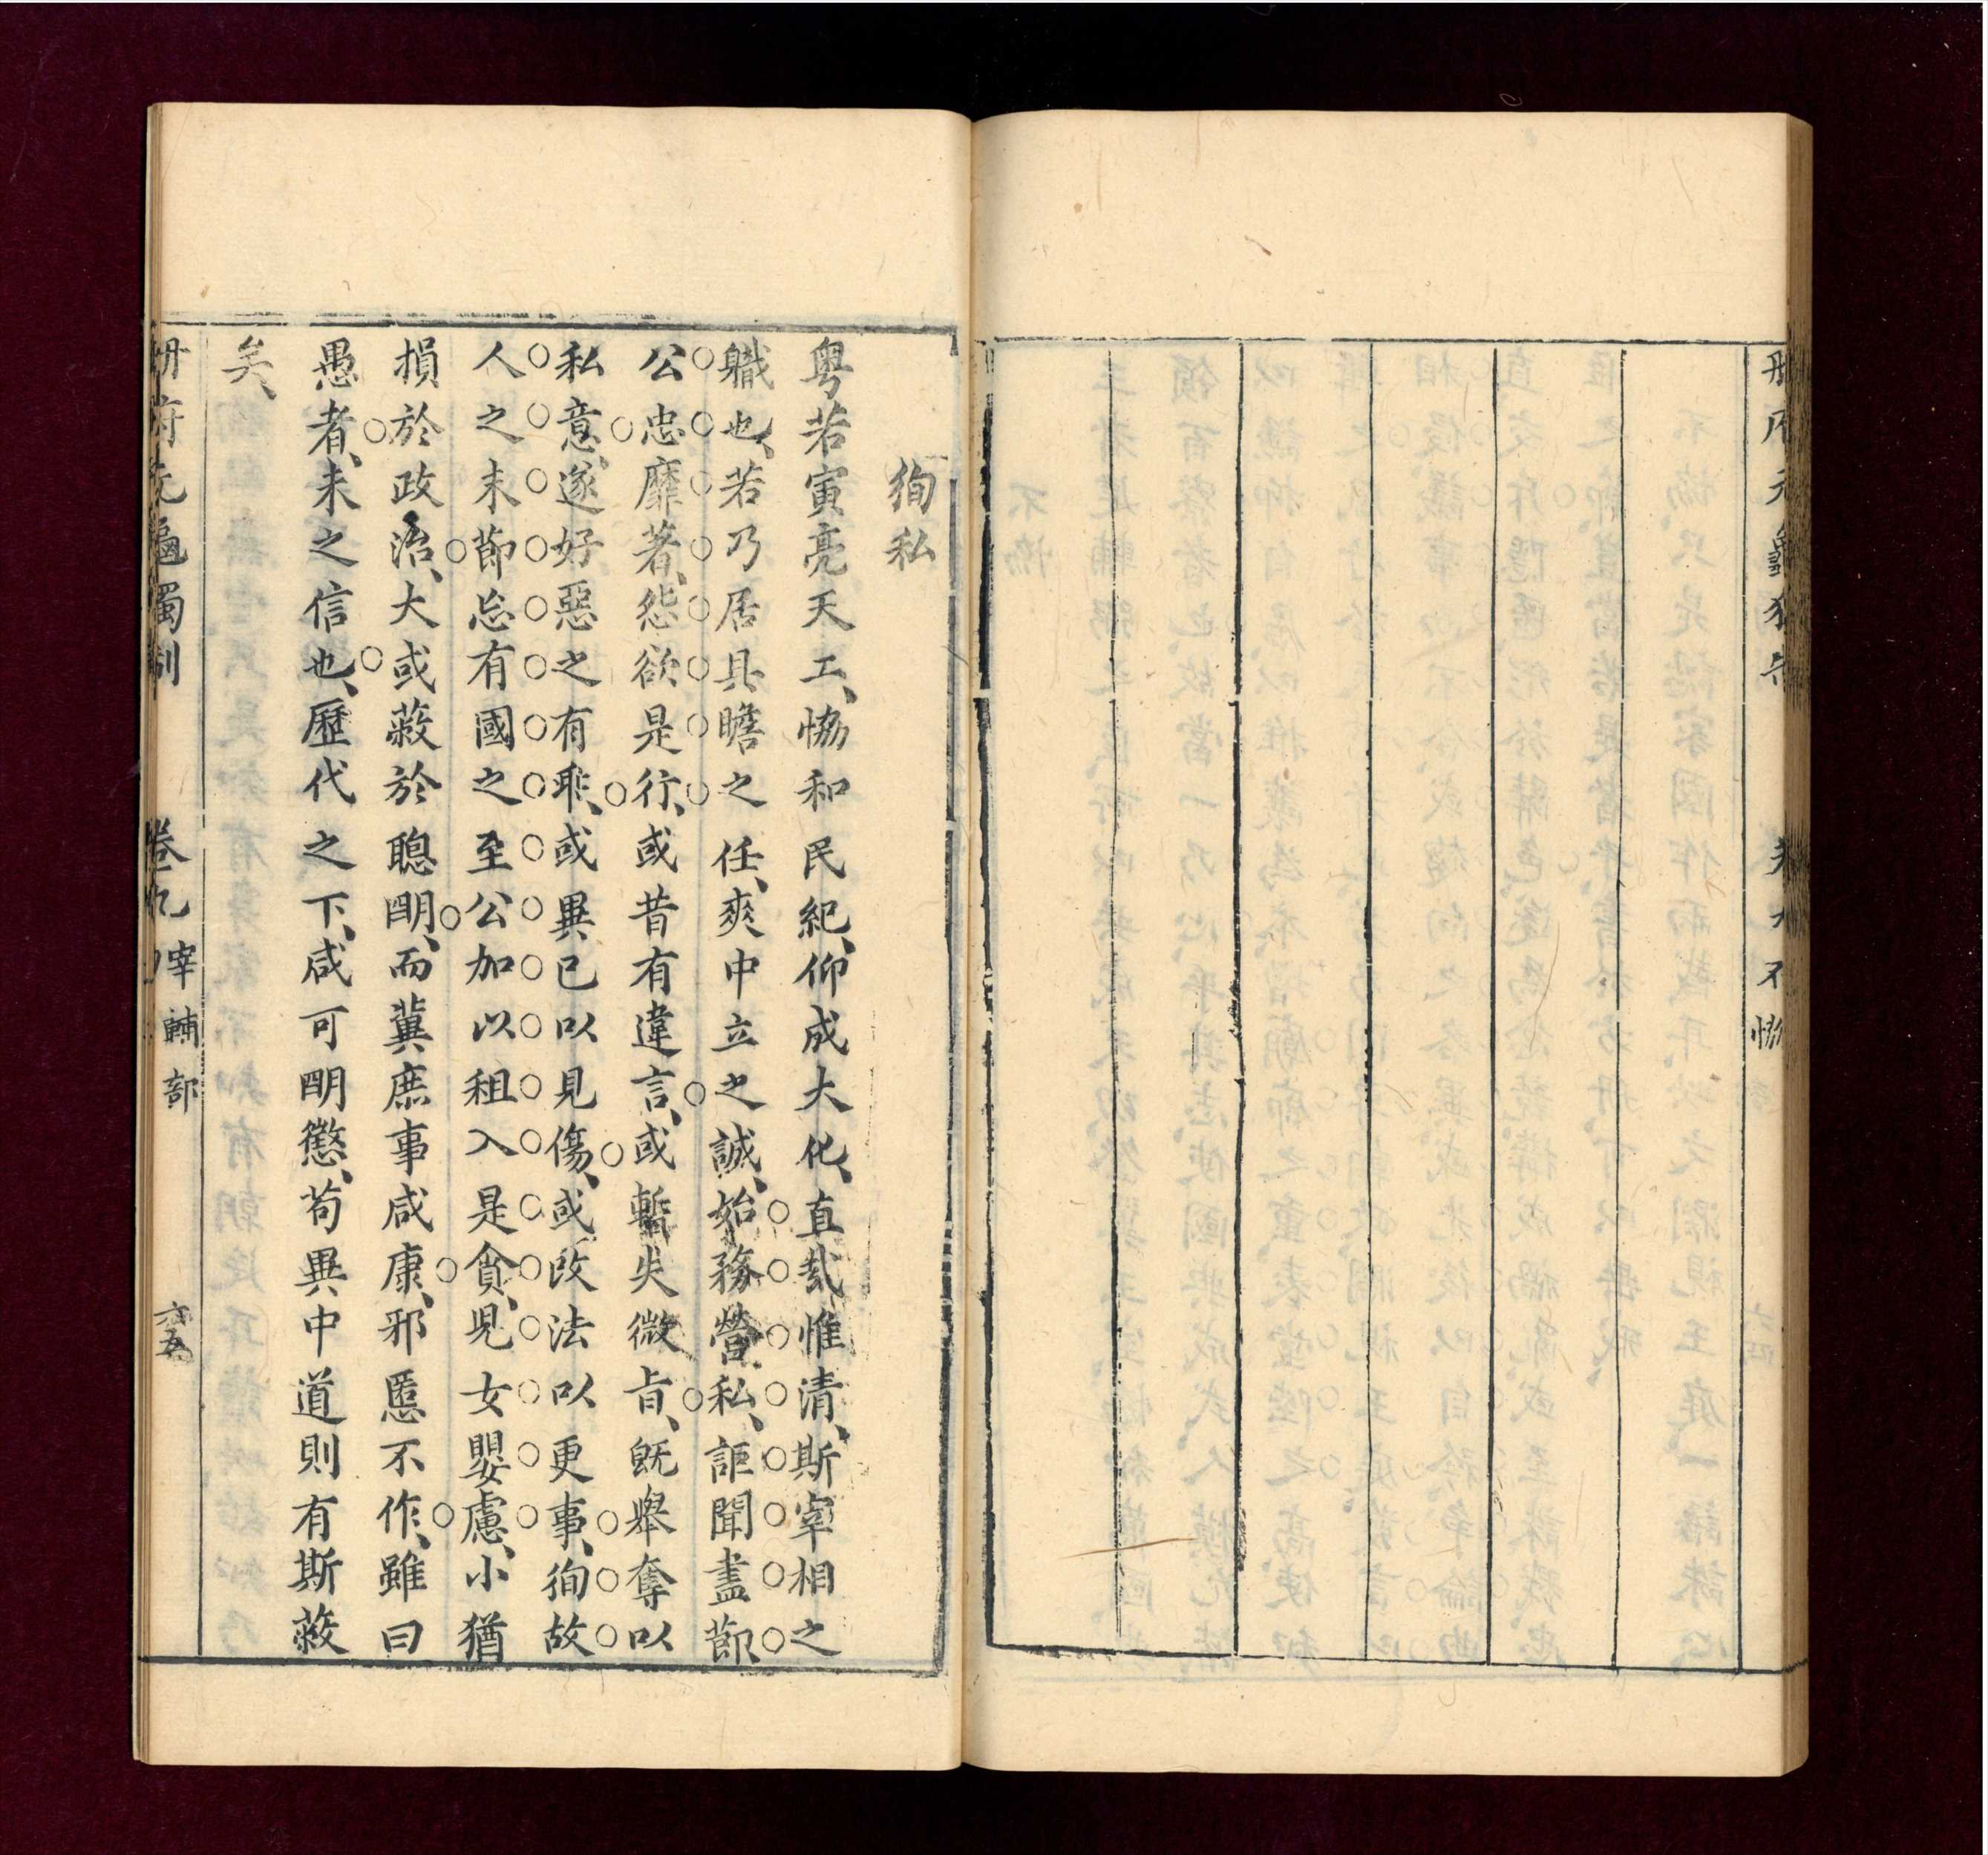 冊府元龜獨制 卷九 不恊
徇私
粤若寅亮天工、恊和民紀、仰成大化、直哉惟清、斯宰相之
職也、若乃居具瞻之任、爽中立之誠、始務營私、詎聞盡節
公忠靡著、怨欲是行、或昔有違言、或暫失微旨、旣舉奪以
私意、遂好惡之有乖、或異已以見傷、或改法以更事、徇故
人之末節忘有國之至公加以租入是貪、兒女嬰慮、小猶
損於政治、大或蔽於聰明、而冀庶事咸康、邪慝不作、雖曰
愚者、未之信也、歷代之下、咸可明懲、苟異中道則有斯蔽
矣、
冊府元龜獨制 卷九 宰輔部 六五